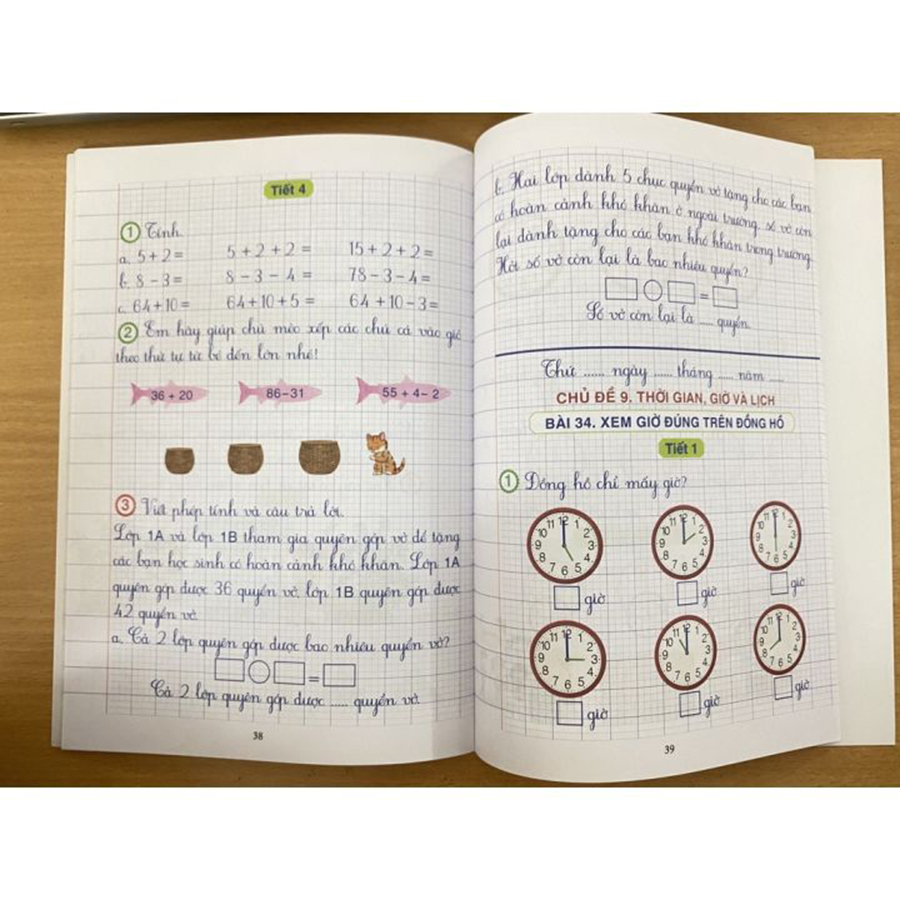 Tiết 4
1 Tính
a. 5 + 2 = 5 + 2 + 2 = 15 + 2 + 2 =
b. 8 - 3 = 8 - 3 - 4 = 78 - 3 - 4 =
c. 64 + 10 = 64 + 10 + 5 = 64 + 10 - 3 =
2 Em hãy giúp chú mèo xếp các chú cá vào giỏ
theo thứ tự từ bé đến lớn nhé!
36 + 20 86 - 31 55 + 4 - 2
3 Viết phép tính và câu trả lời.
Lớp 1A và lớp 1B tham gia quyên góp vở để tặng
các bạn học sinh có hoàn cảnh khó khăn. Lớp 1A
quyên góp được 36 quyển vở, lớp 1B quyên góp được
42 quyển vở.
a. Cả 2 lớp quyên góp được bao nhiêu quyển vở?
=
Cả 2 lớp quyên góp được ..... quyển vở.
38
b. Hai lớp dành 5 chục quyển vở tặng cho các bạn
có hoàn cảnh khó khăn ở ngoài trường, số vở còn
lại dành tặng cho các bạn khó khăn trong trường.
Hỏi số vở còn lại là bao nhiêu quyển?
=
Số vở còn lại là ..... quyển.
Thứ ...... ngày ...... tháng ..... năm .....
CHỦ ĐỀ 9. THỜI GIAN, GIỜ VÀ LỊCH
BÀI 34. XEM GIỜ ĐÚNG TRÊN ĐỒNG HỒ
Tiết 1
1 Đồng hồ chỉ mấy giờ?
12 1 2 3 4 5 6 7 8 9 10 11
12 1 2 3 4 5 6 7 8 9 10 11
12 1 2 3 4 5 6 7 8 9 10 11
giờ giờ giờ
12 1 2 3 4 5 6 7 8 9 10 11
12 1 2 3 4 5 6 7 8 9 10 11
12 1 2 3 4 5 6 7 8 9 10 11
giờ giờ giờ
39